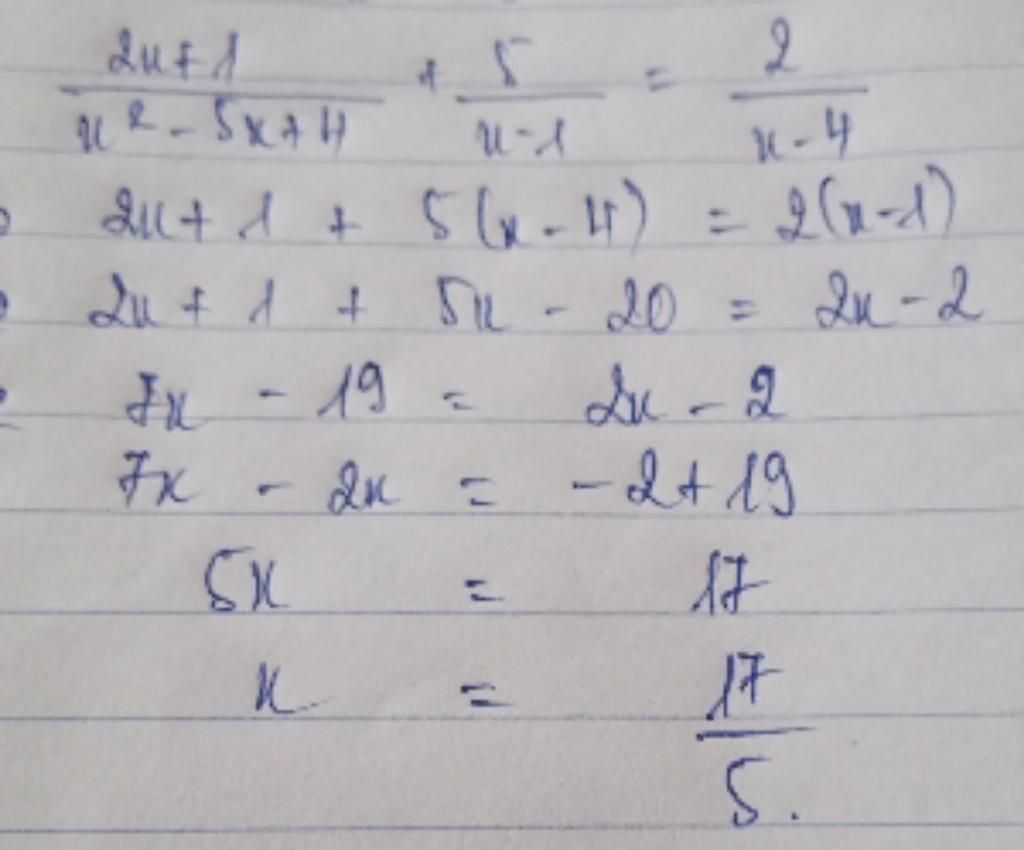 (2x+1)/(x² - 5x+4) + 5/(x-1) = 2/(x-4)
2x+1 + 5(x-4) = 2(x-1)
2x+1 + 5x - 20 = 2x-2
7x - 19 = 2x-2
7x - 2x = -2+19
5x = 17
x = 17/5.